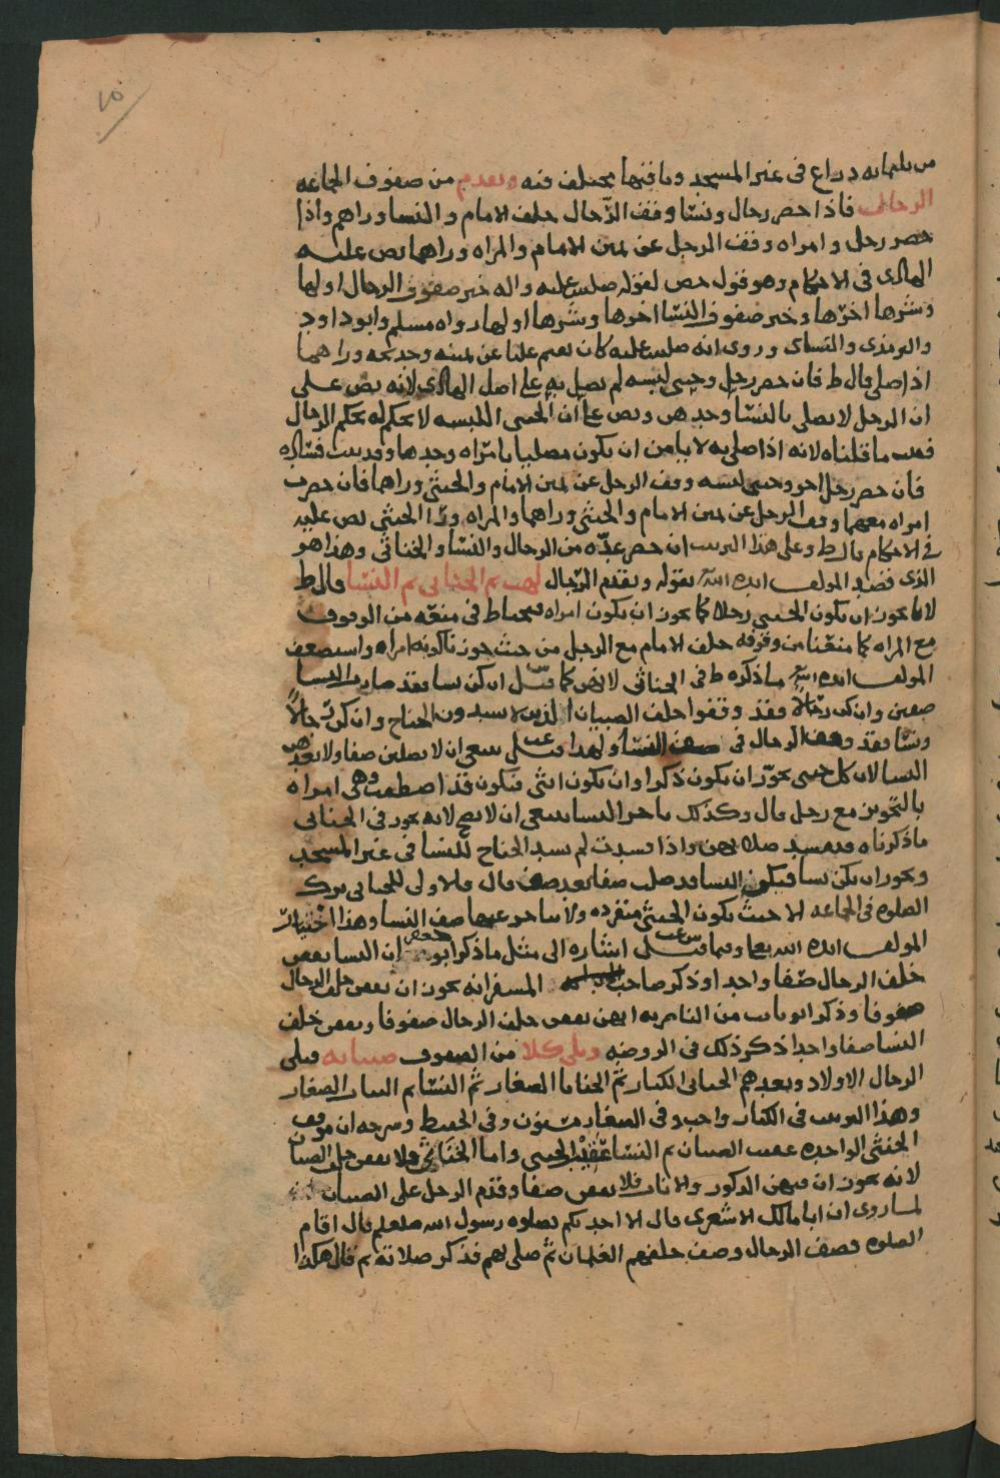 ٧٥
دراع فى غير المسجد وما فيها مختلف فيه وتقدم من صفوف الجماعه
الرجال فاذا حضر رجال ونسا وقف الرجال خلف الامام والنسا وراهم واذا
حضر رجل وامراه وقف الرجل عن يمين الامام والمراه وراهما نص عليه
الهادى فى الاحكام وهو قول لقوله صلى الله عليه واله خير صفوف الرجال اولها
وشرها اخرها وخير صفوف النسا اخرها وشرها اولها رواه مسلم وابو داود
والترمذى والنساى وروى انه صلى الله عليه كان يقيم عليا عن يمينه وخديجه وراهما
اذا صلى قال ط فان حضر رجل وخنثى لبسه لم يصل بهم على اصل الهادى لانه نص على
ان الرجل لا يصلى بالنسا وحدهن ونص على ان الخنثى اللبسه لا يحكم له بحكم الرجال
ما قلناه لانه اذا صلى به لا يامن ان يكون مصليا بامراه وحدها وقد
فان حضر رجل اخر وخنثى لبسه وقف الرجل عن يمين الامام والخنثى وراهما فان حضرت
امراه معهما وقف الرجل عن يمين الامام والخنثى وراهما والمراه ورا الخنثى نص عليه
فى الاحكام قال ط وعلى هذا الترتيب ان حضر عده من الرجال والنسا والخناثى وهذا هو
الذى قصد المولف ايده الله بقوله وتقدم الرجال ثم الخناثى ثم النسا قال ط
لانا نجوز ان يكون الخنثى رجلا كما نجوز ان يكون امراه فيحتاط فى منعه من الوقوف
مع المراه كما منعنا من وقوفه خلف الامام مع الرجل من حيث جوزنا كونه امراه واستضعف
المولف ايده الله ما ذكره ط فى الخناثى لانهن كما قيل ان كن نسا فقد صارت النسا
صفين وان كن رجالا فقد وقفوا خلف الصبيان الذين لا يسدون الجناح وان كن رجالا
ونسا فقد وقف الرجال فى صف النسا ولهذا قيل ينبغى ان لا يصلين صفا ولا
النسا لان كل خنثى يجوز ان يكون ذكرا وان يكون انثى فيكون قد اصطفت وهى امراه
بالتجويز مع رجل قال وكذلك تاخر النسا ينبغى ان لا يصح لانه يجوز فى الخناثى
ما ذكرناه فتفسد صلاتهن واذا فسدت لم يسد الجناح للنسا فى غير المسجد
ويجوز ان يكن نسا فيكون النسا قد صلين صفا بعد صف قال فالاولى للخناثى ترك
الصلوه فى الجماعه الا حيث يكون الخنثى منفرده ولا يتاخر عنها صف النسا وهذا اختيار
المولف ايده الله تعالى وفيما قيل اشاره الى مثل ما ذكر ابو جعفر ان النسا يقفن
خلف الرجال صفا واحدا وذكر صاحب المسفر انه يجوز ان يقفن خلف الرجال
صفوفا وذكر من الناصريه انهن يقفن خلف الرجال صفوفا ويقفن خلف
النسا صفا واحدا ذكر ذلك فى الروضه ويلى كلا من الصفوف صبيانه فيلى
الرجال الاولاد وبعدهم الخناثى الكبار ثم الخناثا الصغار ثم النسا ثم البنات الصغار
وهذا الترتيب فى الكبار واجب وفى الصغار مسنون وفى الحفيظ وشرحه ان موقف
الخنثى الواحده عقب الصبيان ثم النسا عقيب الخنثى واما الخناثى فلا يقفن خلف الصبيان
لانه يجوز ان فيهن الذكور والاناث فلا يقفن صفا وقدم الرجل على الصبيان
لما روى ان ابا مالك الاشعرى قال الا احدثكم بصلوه رسول الله صلعم قال اقام
الصلوه فصف الرجال وصف خلفهم الغلمان ثم صلى بهم فذكر صلاته ثم قال هكذا